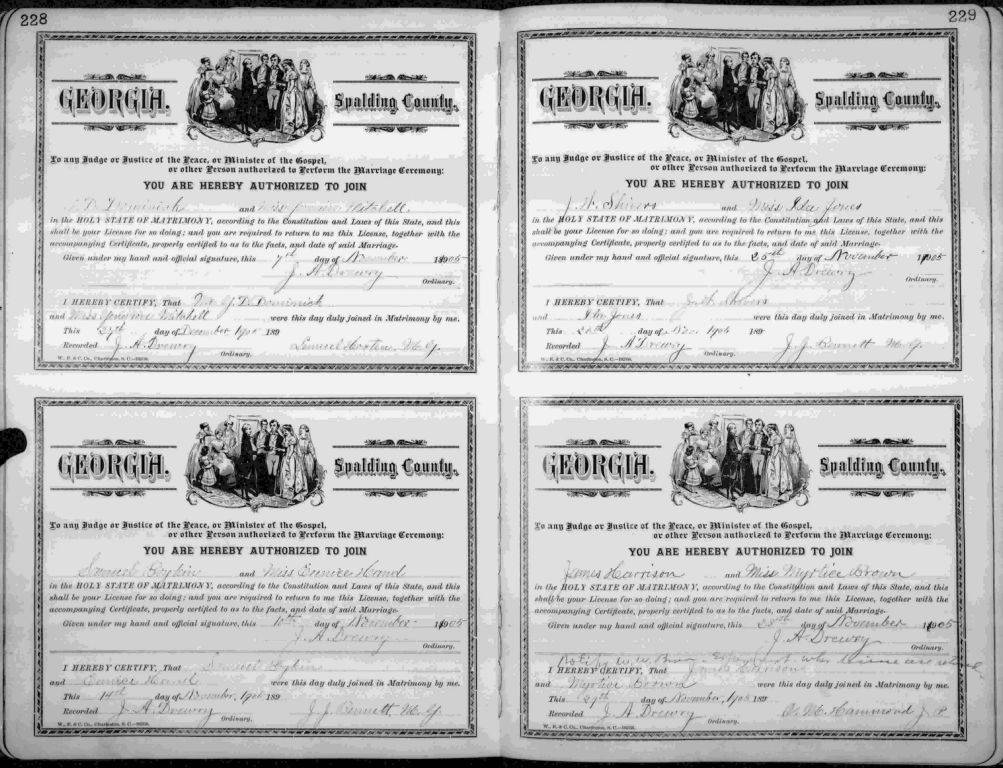 228
GEORGIA. Spalding County.
To any Judge or Justice of the Peace, or Minister of the Gospel,
or other Person authorized to Perform the Marriage Ceremony:
YOU ARE HEREBY AUTHORIZED TO JOIN
D. Dominick and Miss Mitchell
in the HOLY STATE OF MATRIMONY, according to the Constitution and Laws of this State, and this
shall be your License for so doing; and you are required to return to me this License, together with the
accompanying Certificate, properly certified to as to the facts, and date of said Marriage.
Given under my hand and official signature, this 7th day of November 1905
J. A. Drewry
Ordinary.
I HEREBY CERTIFY, That D. Dominick
and Miss Mitchell were this day duly joined in Matrimony by me.
This 27th day of December 1905 189
Recorded J. A. Drewry Lemuel M. G.
Ordinary.
W., E. & C. Co., Charleston, S. C.
GEORGIA. Spalding County.
To any Judge or Justice of the Peace, or Minister of the Gospel,
or other Person authorized to Perform the Marriage Ceremony:
YOU ARE HEREBY AUTHORIZED TO JOIN
Samuel Boykin and Miss Eunice Hand
in the HOLY STATE OF MATRIMONY, according to the Constitution and Laws of this State, and this
shall be your License for so doing; and you are required to return to me this License, together with the
accompanying Certificate, properly certified to as to the facts, and date of said Marriage.
Given under my hand and official signature, this 10th day of November 1905
J. A. Drewry
Ordinary.
I HEREBY CERTIFY, That Samuel
and Eunice Hand were this day duly joined in Matrimony by me.
This 14th day of November, 1905 189
Recorded J. A. Drewry J. J. Bennett M. G.
Ordinary.
W., E. & C. Co., Charleston, S. C.
229
GEORGIA. Spalding County.
To any Judge or Justice of the Peace, or Minister of the Gospel,
or other Person authorized to Perform the Marriage Ceremony:
YOU ARE HEREBY AUTHORIZED TO JOIN
J. W. Shivers and Miss Ida Jones
in the HOLY STATE OF MATRIMONY, according to the Constitution and Laws of this State, and this
shall be your License for so doing; and you are required to return to me this License, together with the
accompanying Certificate, properly certified to as to the facts, and date of said Marriage.
Given under my hand and official signature, this 25th day of November 1905
J. A. Drewry
Ordinary.
I HEREBY CERTIFY, That J. W. Shivers
and Ida Jones were this day duly joined in Matrimony by me.
This day of Nov. 1905 189
Recorded J. A. Drewry J. J. Bennett M. G.
Ordinary.
W., E. & C. Co., Charleston, S. C.
GEORGIA. Spalding County.
To any Judge or Justice of the Peace, or Minister of the Gospel,
or other Person authorized to Perform the Marriage Ceremony:
YOU ARE HEREBY AUTHORIZED TO JOIN
James Harrison and Miss Myrtice Brown
in the HOLY STATE OF MATRIMONY, according to the Constitution and Laws of this State, and this
shall be your License for so doing; and you are required to return to me this License, together with the
accompanying Certificate, properly certified to as to the facts, and date of said Marriage.
Given under my hand and official signature, this 28th day of November 1905
J. A. Drewry
Ordinary.
Notify
I HEREBY CERTIFY, That
and Myrtice Brown were this day duly joined in Matrimony by me.
This 29th day of November, 1905 189
Recorded J. A. Drewry Hammond J. P.
Ordinary.
W., E. & C. Co., Charleston, S. C.